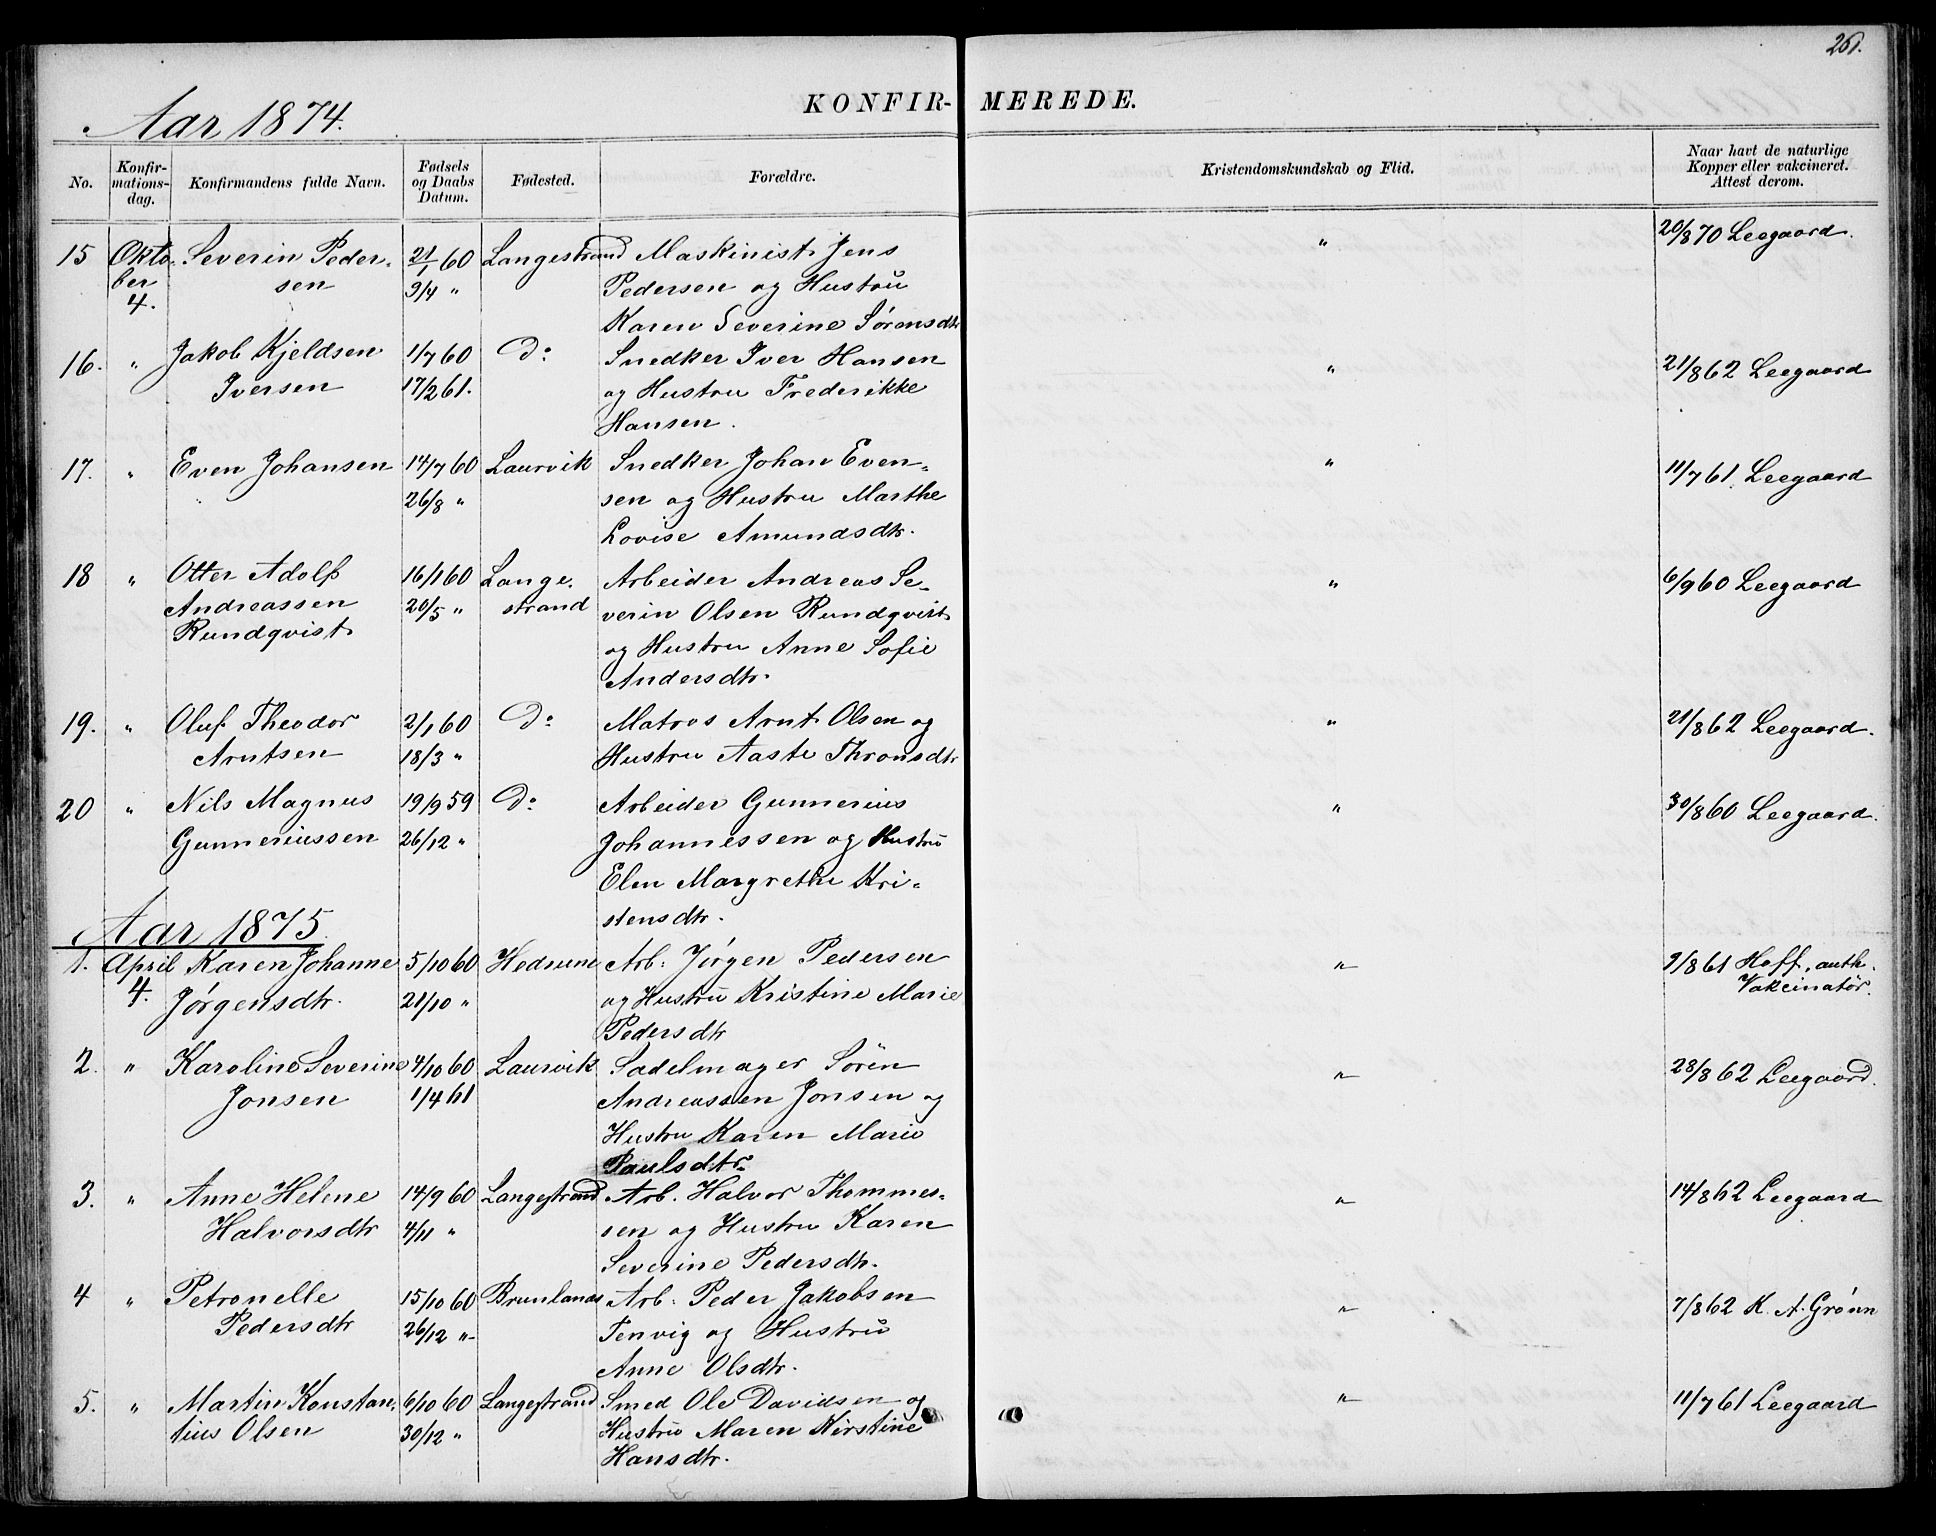 261.
Aar 1874.
KONFIR- MEREDE.
No.
Konfir-
mations-
dag.
Konfirmandens fulde Navn.
Fødsels
og Daabs
Datum.
Fødested.
Forældre.
Kristendomskundskab og Flid.
Naar havt de naturlige
Kopper eller vakcineret.
Attest derom.
15 Okto- Severin Peder- 21/1 60 Langestrand Maskinist Jens " 20/8 70 Leegaard.
ber sen 9/4 " Pedersen og Hustru
4. Karen Severine Sørensdtr
16. " Jakob Kjeldsen 1/7 60 Do Snedker Iver Hansen " 21/8 62 Leegaard
Iversen 17/2 61. og Hustru Frederikke
Hansen.
17. " Even Johansen 14/7 60 Laurvik Snedker Johan Even- " 11/7 61 Leegaard
26/8 " sen og Hustru Marthe
Lovise Amundsdtr.
18 " Otter Adolf 16/1 60 Lange- Arbeider Andreas Se- " 6/9 60 Leegaard
Andreassen 20/5 " strand verin Olsen Rundqvist
Rundqvist og Hustru Anne Sofie
Andersdtr.
19. " Oluf Theodor 2/1 60 Do Matros Arnt Olsen og " 21/8 62 Leegaard.
Arntsen 18/3 " Hustru Aaste Thronsdtr
20 " Nils Magnus 19/9 59 Do Arbeider Gunnerius " 30/8 60 Leegaard.
Gunneriussen 26/12 " Johannessen og Hustru
Elen Margrethe Kri-
stensdtr.
Aar 1875.
1. April Karen Johanne 5/10 60 Hedrum Arb. Jørgen Pedersen " 9/8 61 Hoff, auth.
4. Jørgensdtr. 21/10 " og Hustru Kristine Marie Vakcinatør.
Pedersdtr
2. " Karoline Severine 4/10 60 Laurvik Sadelmager Sören " 28/8 62 Leegaard.
Jonsen 1/4 61 Andreassen Jonsen og
Hustru Karen Marie
Paulsdtr.
3. " Anne Helene 14/9 60 Langestrand Arb. Halvor Thommes- " 14/8 62 Leegaard
Halvorsdtr 4/11 " sen og Hustru Karen
Severine Pedersdtr.
4 " Petronelle 15/10 60 Brunlanæs Arb. Peder Jakobsen " 7/8 62 K. A. Grønn
Pedersdtr 26/12 " Tenvig og Hustru
Anne Olsdtr.
5. " Martin Konstan- 6/10 60 Langestrand Smed Ole Davidsen og " 11/7 61 Leegaard
tius Olsen 30/12 " Hustru Maren Kirstine
Hansdtr.